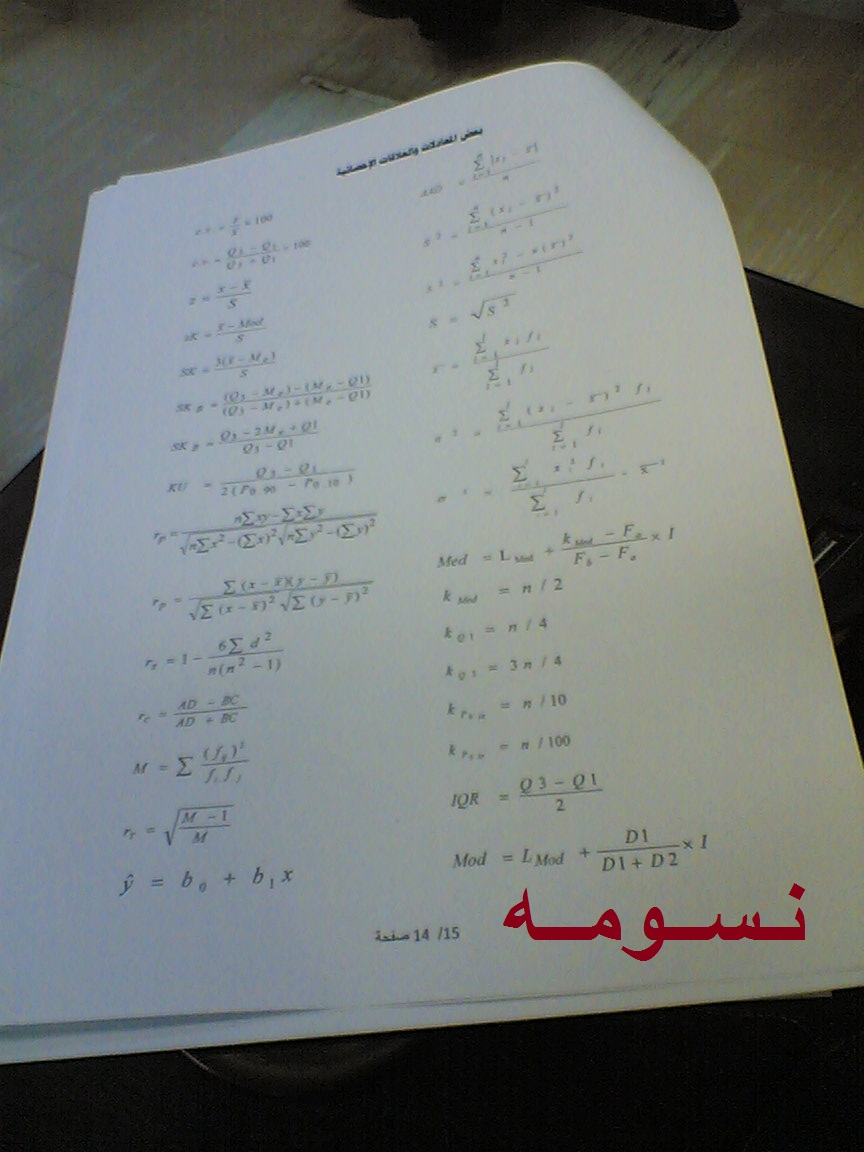 بعض المعادلات والعلاقات الإحصائية
AAD = \frac{\sum_{i=1}^{n} |x_i - \bar{x}|}{n}
S^2 = \frac{\sum_{i=1}^{n} (x_i - \bar{x})^2}{n - 1}
s^2 = \frac{\sum_{i=1}^{n} x_i^2 - n(\bar{x})^2}{n - 1}
S = \sqrt{S^2}
\bar{x} = \frac{\sum_{i=1}^{l} x_i f_i}{\sum_{i=1}^{l} f_i}
σ^2 = \frac{\sum_{i=1}^{l} (x_i - \bar{x})^2 f_i}{\sum_{i=1}^{l} f_i}
σ^2 = \frac{\sum_{i=1}^{l} x_i^2 f_i}{\sum_{i=1}^{l} f_i} - \bar{x}^2
Med = L_{Med} + \frac{k_{Med} - F_a}{F_b - F_a} × I
k_{Med} = n / 2
k_{Q1} = n / 4
k_{Q3} = 3n / 4
= n / 10
= n / 100
IQR = \frac{Q3 - Q1}{2}
Mod = L_{Mod} + \frac{D1}{D1 + D2} × I
c.v. = \frac{s}{\bar{x}} × 100
c.v. = \frac{Q_3 - Q_1}{Q_3 + Q_1} × 100
z = \frac{x - \bar{x}}{S}
SK = \frac{\bar{x} - Mod}{S}
SK = \frac{3(\bar{x} - M_e)}{S}
SK_B = \frac{(Q_3 - M_e) - (M_e - Q1)}{(Q_3 - M_e) + (M_e - Q1)}
SK_B = \frac{Q_3 - 2M_e + Q1}{Q_3 - Q1}
KU = \frac{Q_3 - Q_1}{2(P_{0.90} - P_{0.10})}
r_p = \frac{n\sum xy - \sum x \sum y}{\sqrt{n\sum x^2 - (\sum x)^2} \sqrt{n\sum y^2 - (\sum y)^2}}
r_p = \frac{\sum (x - \bar{x})(y - \bar{y})}{\sqrt{\sum (x - \bar{x})^2} \sqrt{\sum (y - \bar{y})^2}}
r_s = 1 - \frac{6\sum d^2}{n(n^2 - 1)}
r_c = \frac{AD - BC}{AD + BC}
M = \sum \frac{(f_{ij})^2}{f_i f_j}
r_T = \sqrt{\frac{M - 1}{M}}
ŷ = b_0 + b_1 x
صفحة 14 /15
نسومه